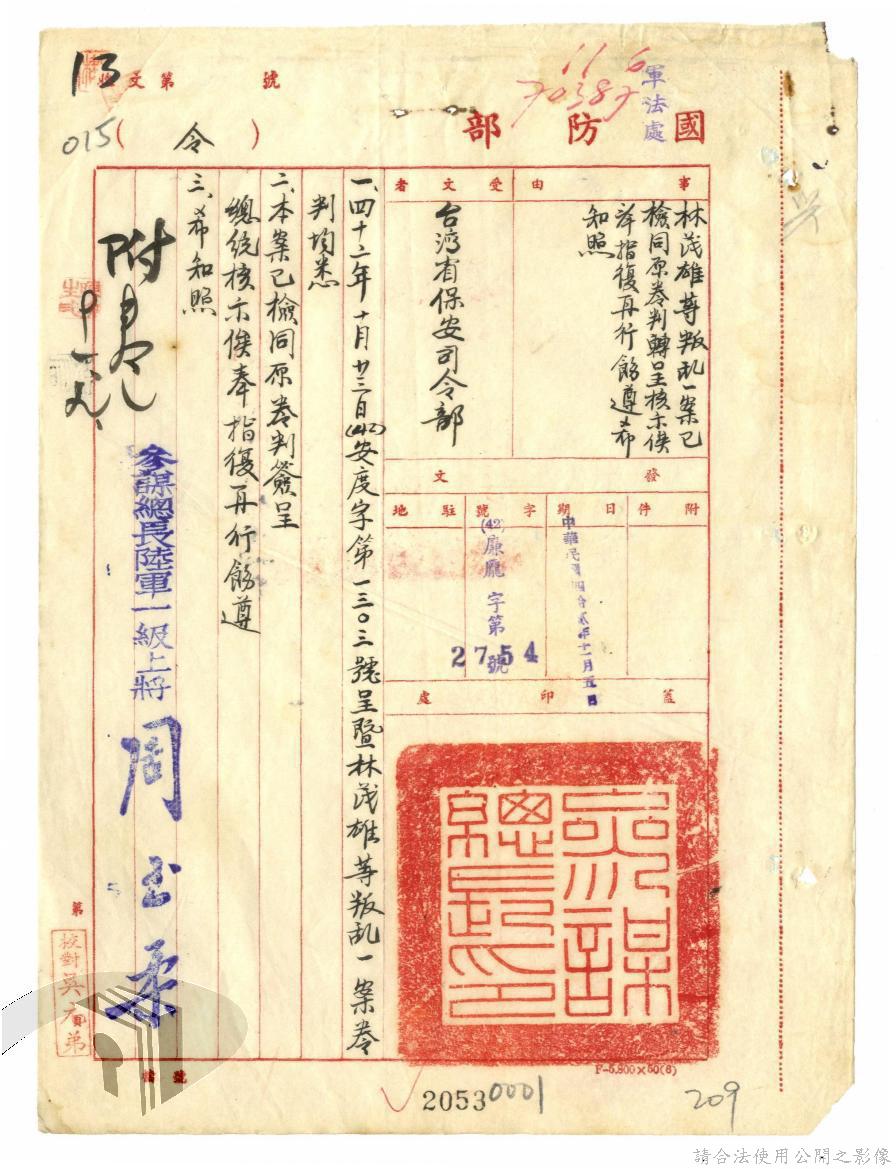 收文第 號
13
015
11 6
70387
軍法處
國防部
(令)
事由
林茂雄等叛乱一案已
檢同原卷判轉呈核示俟
奉指復再行飭遵希
知照
受文者
台湾省保安司令部
發文
附件
日期
中華民國四拾貳年十一月五日
字號
(42)廉龐字第2754號
駐地
蓋印處
參謀總長印
一、四十二年十月廿三日(42)安度字第一三〇三號呈暨林茂雄等叛乱一案卷
判均悉
二、本案已檢同原卷判簽呈
總統核示俟奉指復再行飭遵
三、希知照
附卷
參謀總長陸軍一級上將
周至柔
第
校對吳
弟
檔號
F-5.800×50(6)
20530001
209
請合法使用公開之影像